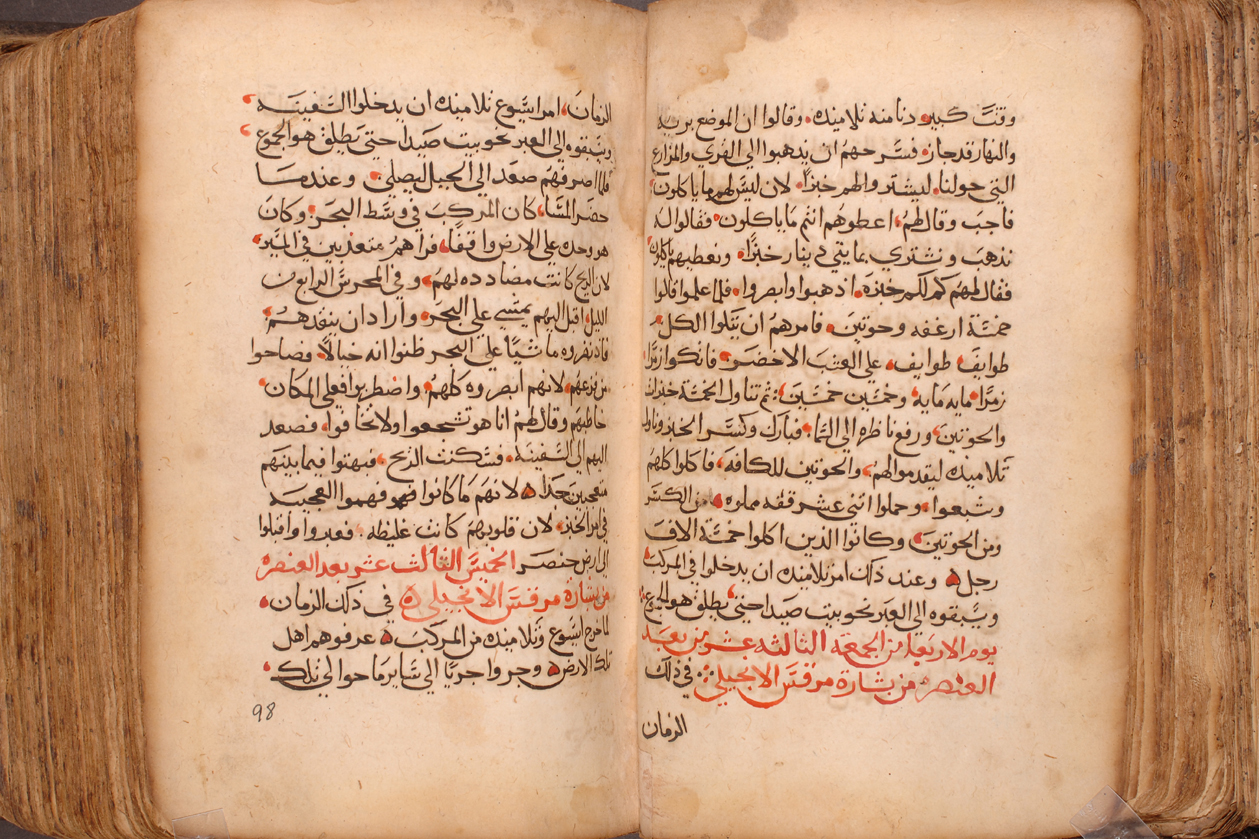 وقتٌ كبير دنا منه تلاميذه وقالوا ان الموضع بريه
والنهار قد جاز فسرحهم ان يذهبوا الي القري والمزارع
التي حولنا ليشتروا لهم خبزا لان ليس لهم ما ياكلون
فاجب وقال لهم اعطوهم انتم ما ياكلون فقالوا له
نذهب ونشتري بمايتي دينار خبزا ونعطيهم ياكلون
فقال لهم كم لكم خبزه اذهبوا وابصروا فلما علموا قالوا
خمسة ارغفه وحوتين فامرهم ان يتلوا الكل
طوايف طوايف علي العشب الاخضر فاتكوا زمرا
زمرا مايه مايه وخمسين خمسين ثم تناول الخمسة خبزات
والحوتين ورفع ناظره الي السما فبارك وكسر الخبز وناول
تلاميذه ليقدموا لهم والحوتين للكافه فاكلوا كلهم
وشبعوا وحملوا اثني عشر قفه مملوه من الكسر
ومن الحوتين وكانوا الذين اكلوا خمسة الاف
رجل وعند ذلك امر تلاميذه ان يدخلوا في المركب
ويسبقوه الي العبر نحو بيت صيدا حتي يطلق هو الجموع
يوم الاربعا من الجمعه الثالثه عشر من بعد
العنصره من بشارة مرقس الانجيلي في ذلك
الزمان
الزمان امر ايسوع تلاميذه ان يدخلوا السفينه
ويسبقوه الي العبر نحو بيت صيدا حتي يطلق هو الجموع
فلما اصرفهم صعد الي الجبل ليصلي وعندما
حضر المسا كان المركب في وسط البحر وكان
هو وحده علي الارض واقفا فراهم متعذبين في السير
لان الريح كانت مضادده لهم وفي المحرس الرابع من
الليل اقبل اليهم يمشي علي البحر وارادان ينقدهم
فاذ نظروه ماشيا علي البحر ظنوا انه خيالا فصاحوا
من فزعهم لانهم ابصروه كلهم واضطربوا فعلي المكان
خاطبهم وقال لهم انا هو تشجعوا ولا تخافوا فصعد
اليهم الي السفينه فسكنت الريح فبهتوا فيما بينهم
متعجبين جدا لانهم ما كانوا فهمو فهموا العجيبه
في امر الخبز لان قلوبهم كانت غليظه فعبروا واقبلوا
الي ارض جنصر الخميس الثالث عشر بعد العنصره
من بشارة مرقس الانجيلي في ذلك الزمان
لما خرج ايسوع وتلاميذه من المركب عرفوهم اهل
تلك الارض وجروا جريا الي ساير ما حوالي تلك
98